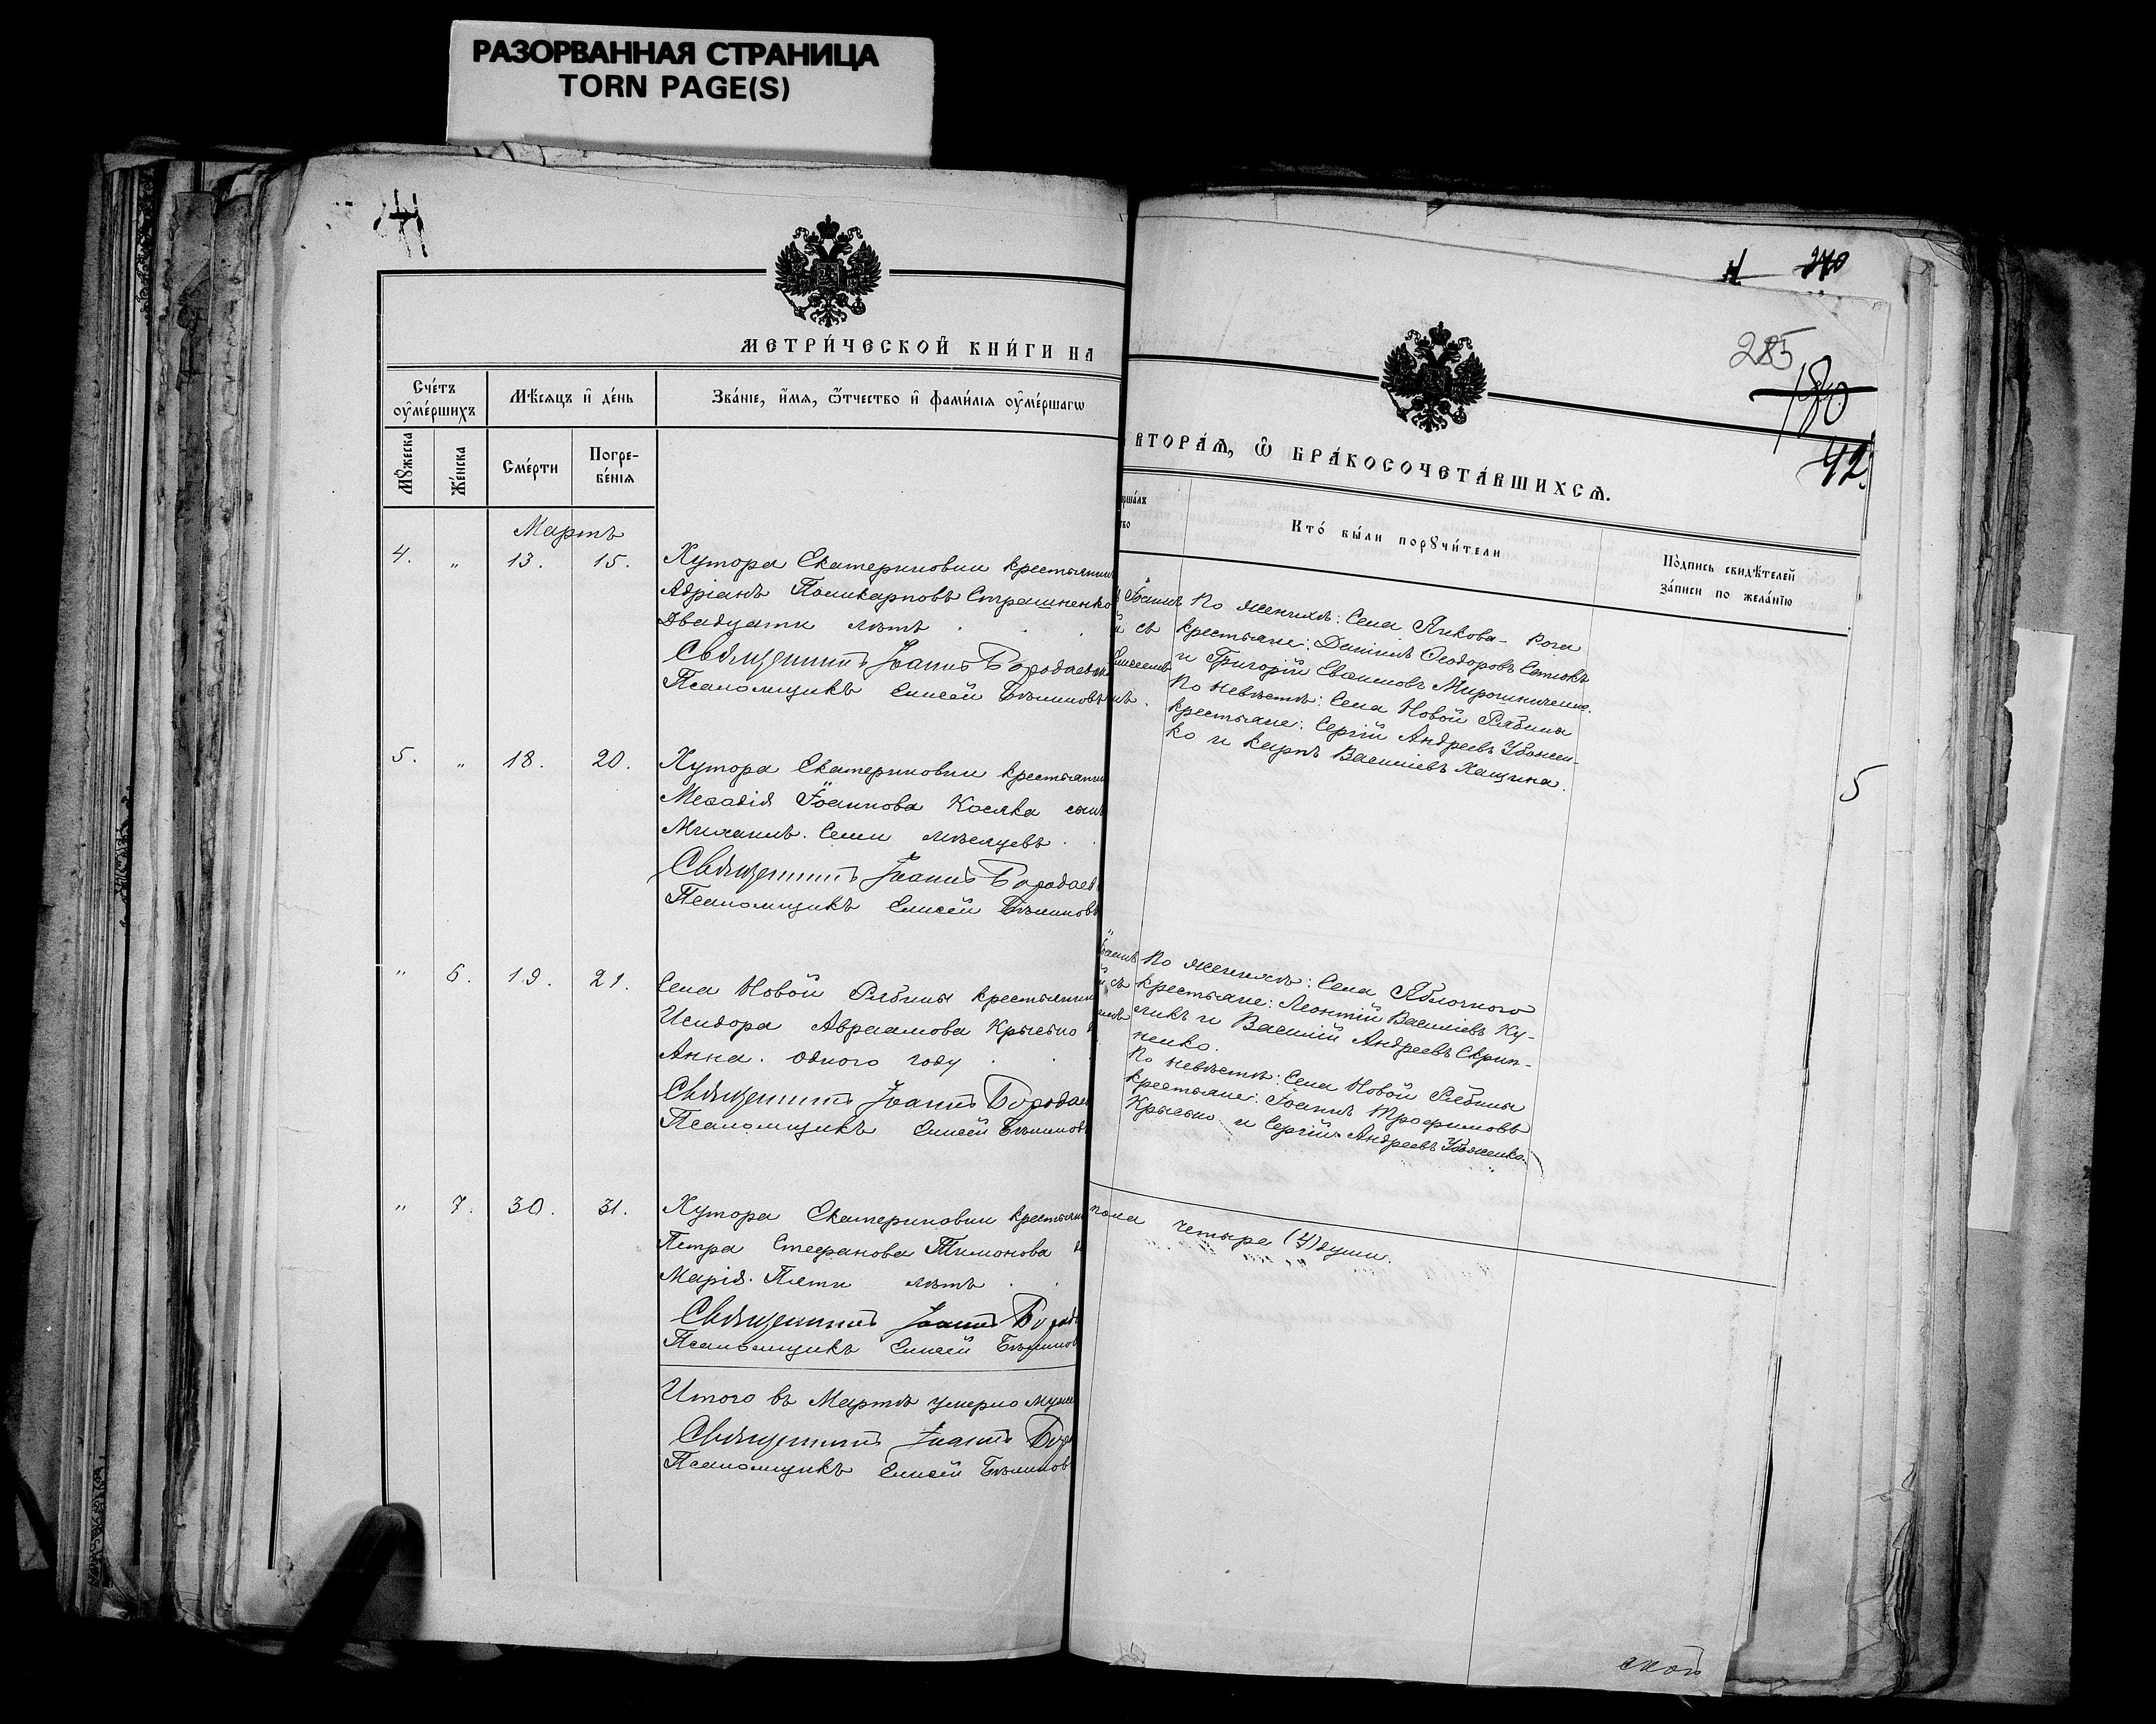 РАЗОРВАННАЯ СТРАНИЦА
TORN PAGE(S)
МЕТРИ́ЧЕСКОЙ КНИ́ГИ НА
Сче́тъ оу҆ме́ршихъ
Мѣ́сяцъ и҆ де́нь
Зва́нїе, и҆́мя, ѻ҆́тчество и҆ фами́лїя оу҆ме́ршагѡ
Мꙋ́жеска
Же́нска
Сме́рти
Погре-
бе́нїя
Мартъ
4. " 13. 15. Хутора Екатериновки крестьянин
Адріанъ Поликарповъ Страшненко
Двадцати лѣтъ
Священникъ Іоаннъ Бородаев
Псаломщикъ Елисей Бѣлиновъ
5. " 18. 20. Хутора Екатериновки крестьянин
Меѳодія Іоаннова Косяка сынъ
Михаилъ. Семи мѣсяцевъ.
Священникъ Іоаннъ Бородаев
Псаломщикъ Елисей Бѣлиновъ
" 6. 19. 21. Села Новой Рябины крестьянин
Исидора Авраамова Крысько
Анна. Одного году
Священникъ Іоаннъ Бородае
Псаломщикъ Елисей Бѣлинов
" 7. 30. 31. Хутора Екатериновки крестьян
Петра Стефанова Тимонова
Марія. Пяти лѣтъ
Священникъ Іоаннъ Бород
Псаломщикъ Елисей Бѣлинов
Итого въ Мартѣ умерло муж
Священникъ Іоаннъ Бор
Псаломщикъ Елисей Бѣлинов
270
285
180
42.
ВТОРА́Ѧ, Ѡ҆ БРА́КОСОЧЕТА́ВШИХСѦ.
Кто́ бы́ли порꙋчи́тели
По́дпись свидѣ́телей
за́писи по жела́нїю
По женихѣ: Села Янкова-Рога
крестьяне: Даніилъ Ѳеодоровъ Сотюкъ
и Григорій Евѳимовъ Мирошниченко.
По невѣстѣ: Села Новой Рябины
крестьяне: Сергій Андреевъ Убожен-
ко и Карпъ Василіевъ Хащина.
5
По женихѣ: Села Яблочного
крестьяне: Леонтій Василіевъ Ку-
ликъ и Василій Андреевъ Скрип-
ненко.
По невѣстѣ: Села Новой Рябины
крестьяне: Іоаннъ Трофимовъ
Крысько и Сергій Андреевъ Убоженко.
пола четыре (4) души.